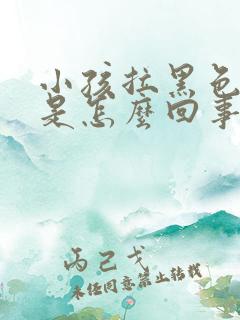 小孩拉黑色
是怎麽回事
丙己戈
未经同意禁止转载